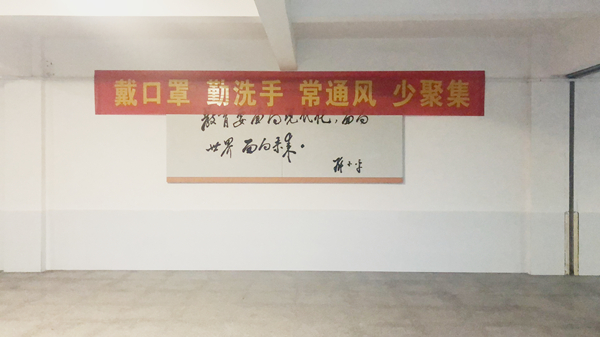 戴口罩 勤洗手 常通风 少聚集
教育要面向现代化，面向
世界 面向未来。
邓小平